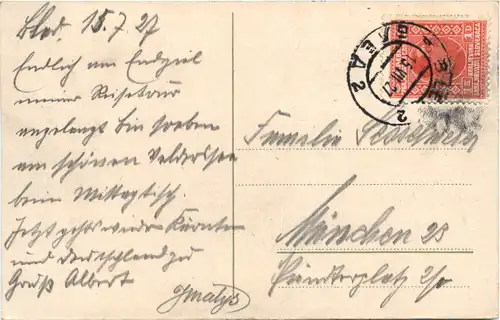 Bled. 15.7.27
Endlich am Endziel
meiner Reisetour
angelangt bin soeben
am schönen Veldersee
beim Mittagstisch.
Jetzt gehts wieder Kärnten
und Deutschland zu
Gruß Albert
BLED 2
13.VII.27
Familie
München 23